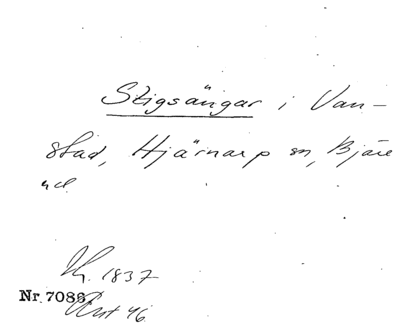 Stigsängar i Van-
stad, Hjärnarp sn, Bjäre
hd
1837
Nr. 7086
46